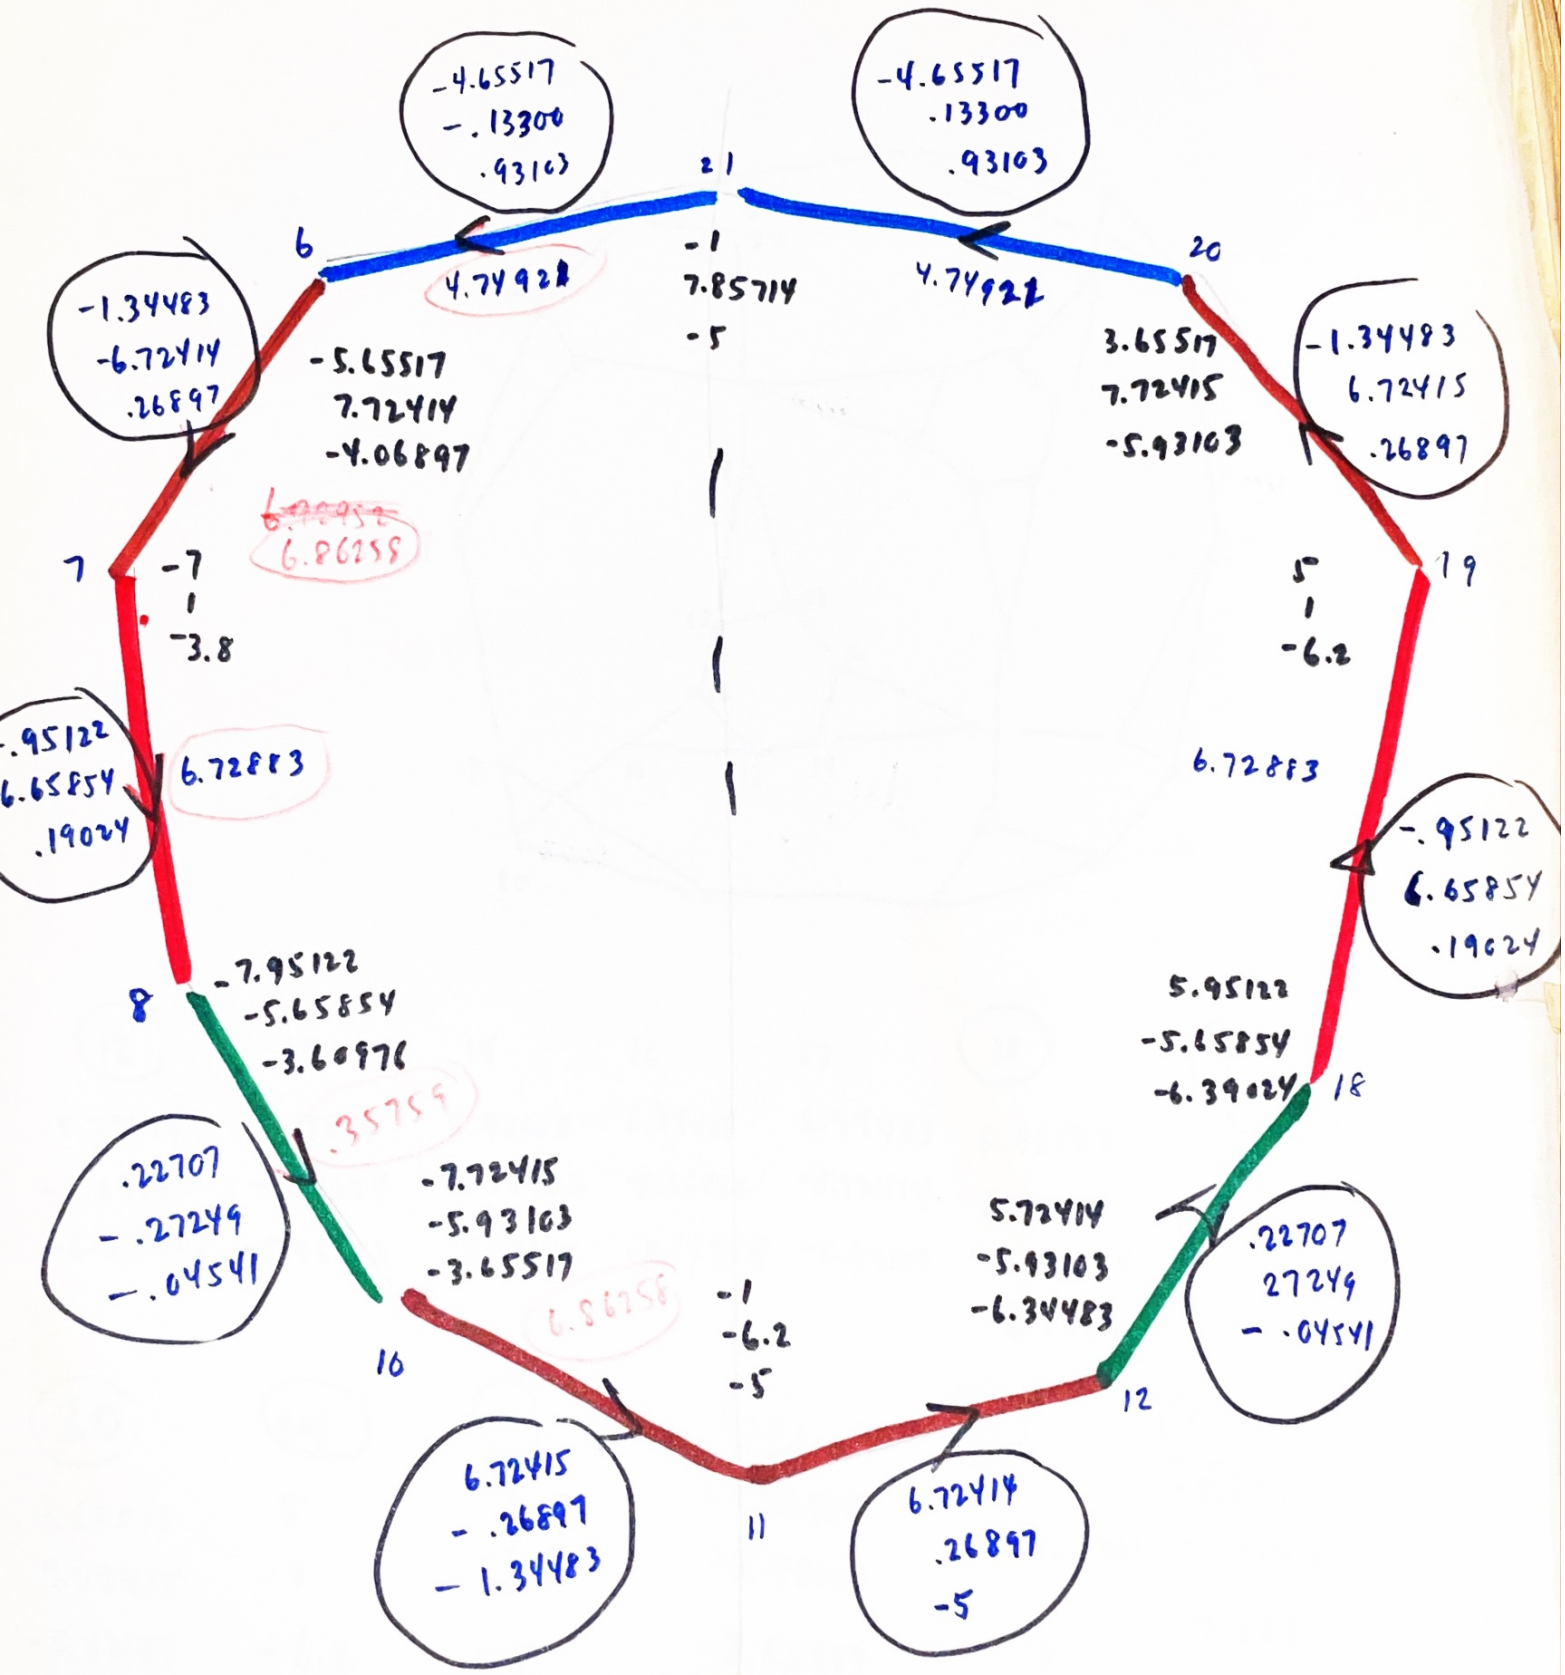 -4.65517
-.13300
.93103
-4.65517
.13300
.93103
21
6
4.74921
-1
7.85714
-5
4.74921
20
-1.34483
-6.72414
.26897
-5.65517
7.72414
-4.06897
3.65517
7.72415
-5.93103
-1.34483
6.72415
.26897
6.86258
7
-7
1
-3.8
5
1
-6.2
19
-.95122
6.65854
.19024
6.72883
6.72883
-.95122
6.65854
.19024
8
-7.95122
-5.65854
-3.60976
5.95122
-5.65854
-6.39024
18
.35759
.22707
-.27249
-.04541
-7.72415
-5.93103
-3.65517
5.72414
-5.93103
-6.34483
.22707
27249
-.04541
6.86258
-1
-6.2
-5
10
12
6.72415
-.26897
-1.34483
11
6.72414
.26897
-5